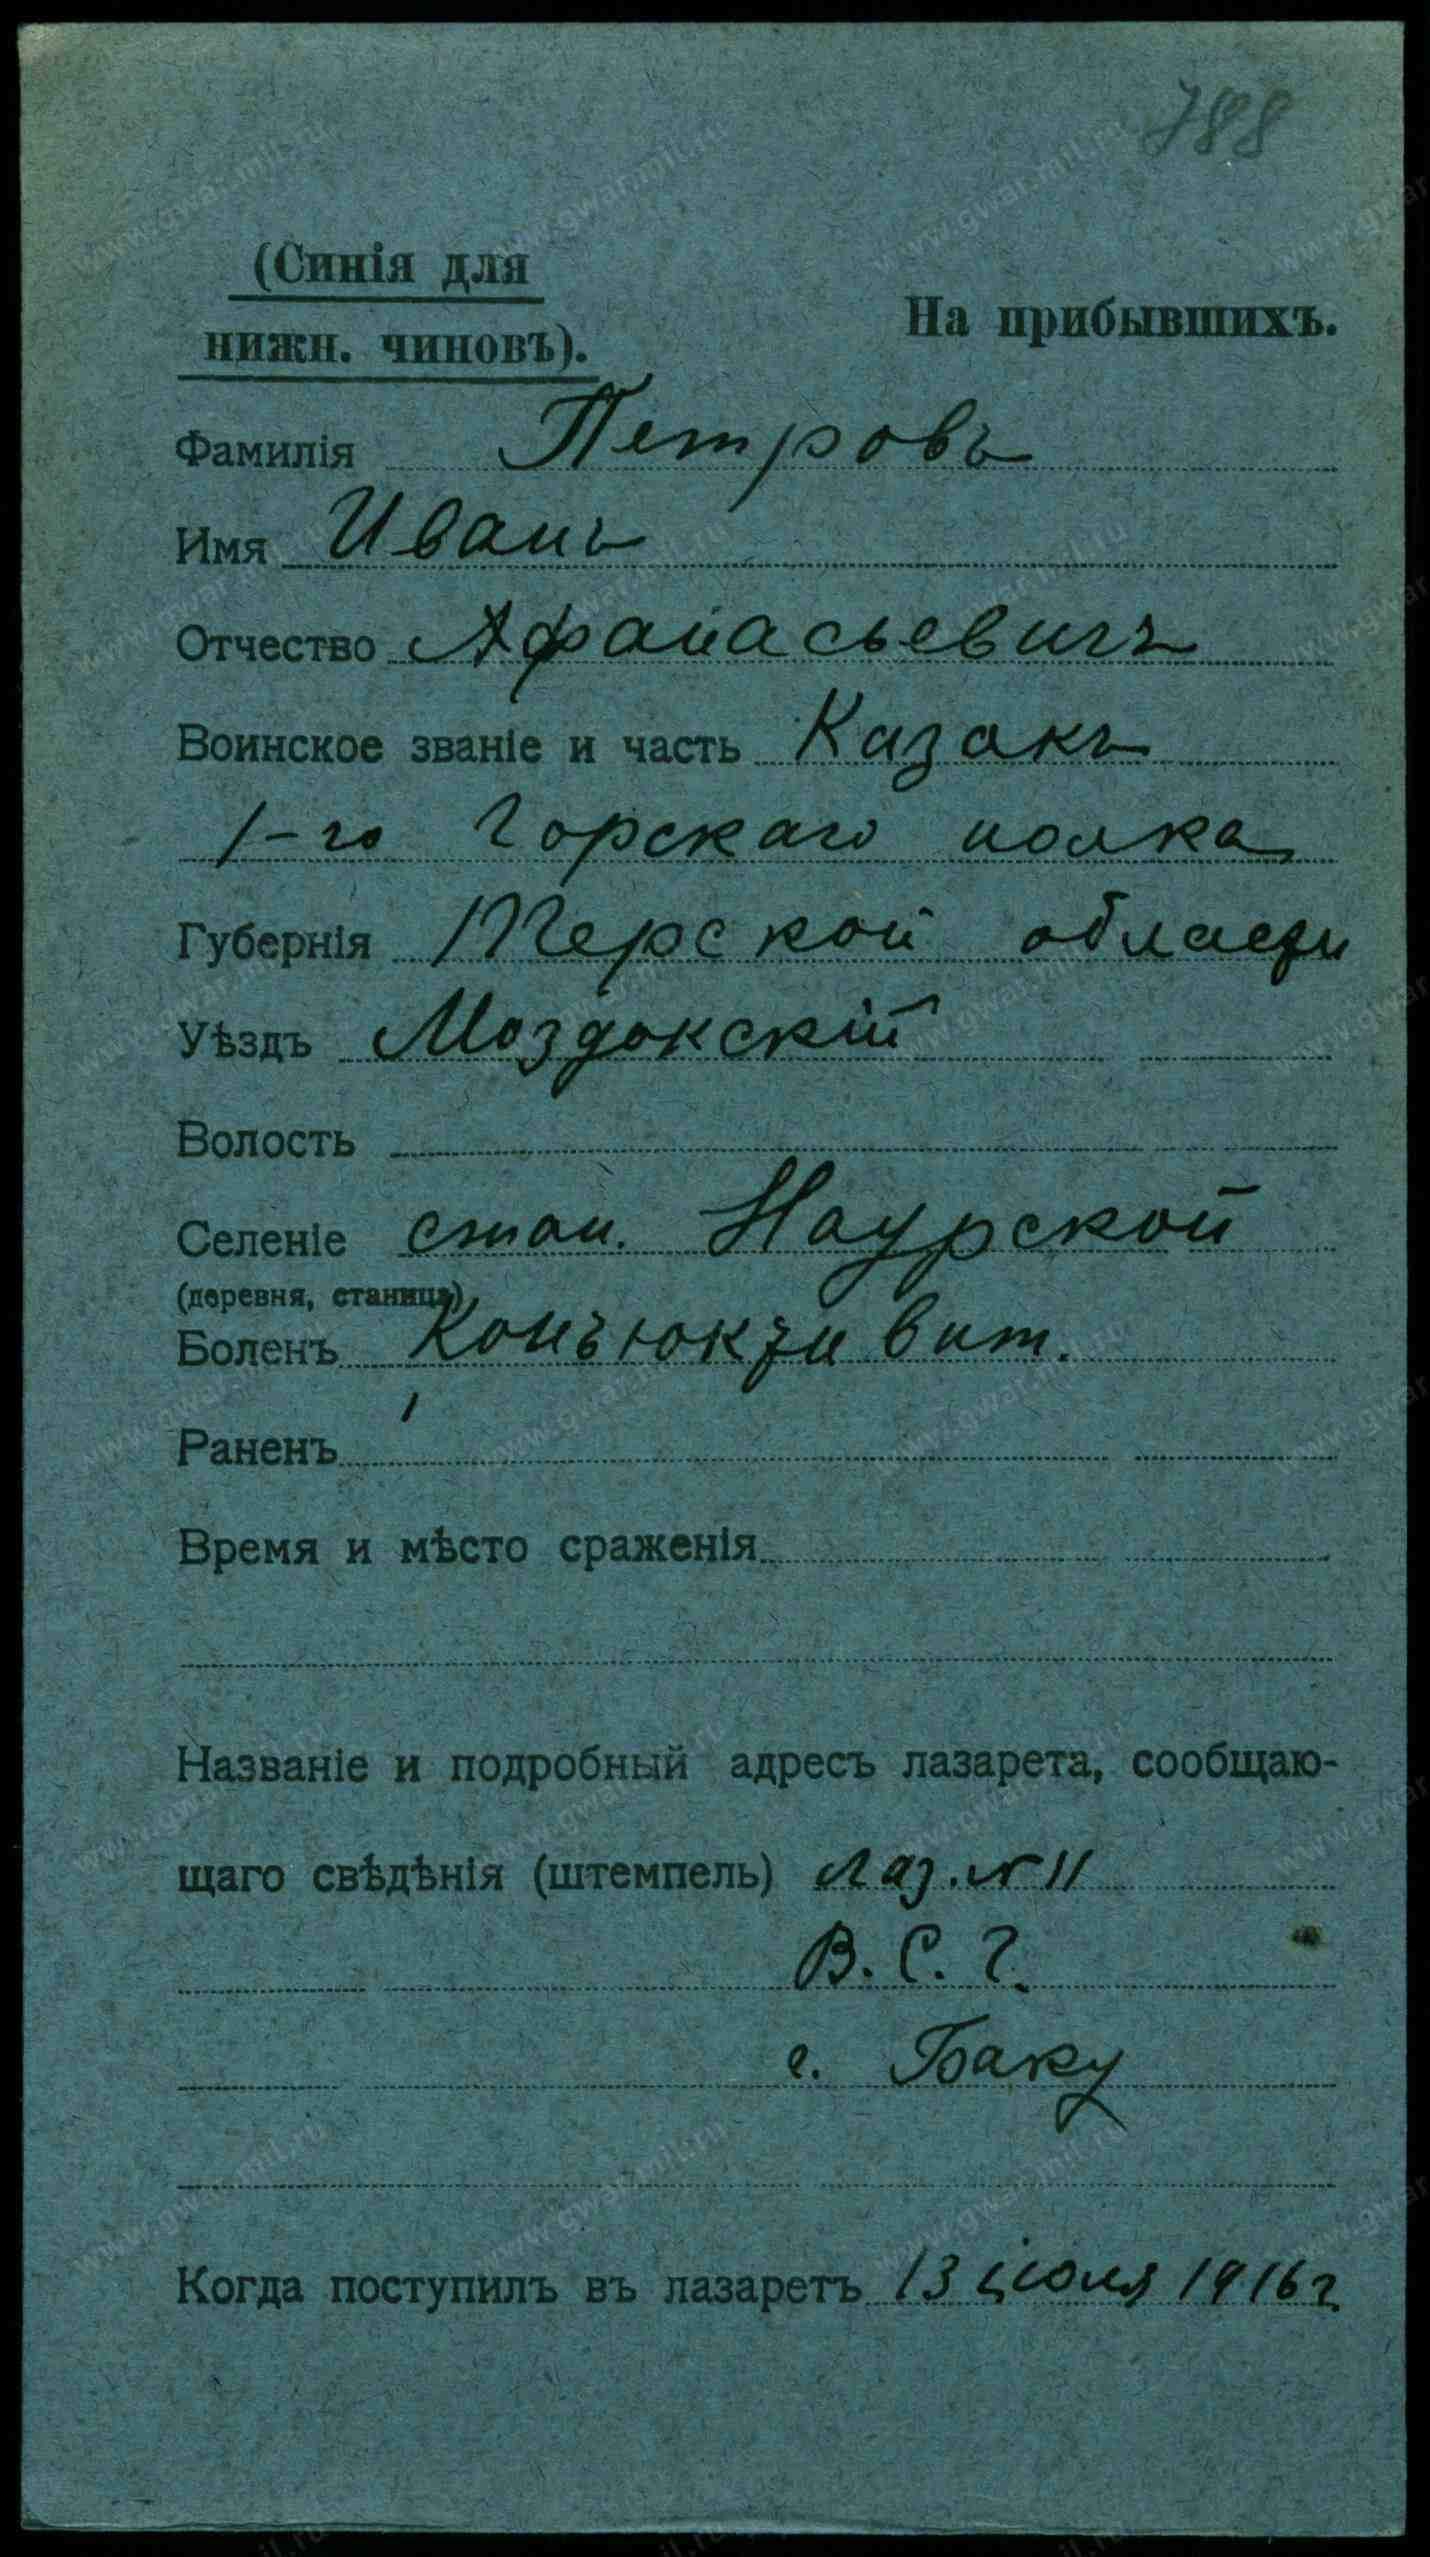 788
(Синія для
нижн. чиновъ).
На прибывшихъ.
Фамилія Петровъ
Имя Иванъ
Отчество Афанасьевичъ
Воинское званіе и часть Казакъ
1-го Горскаго полка
Губернія Терской области
Уѣздъ Моздокскій
Волость
Селеніе стан. Наурской
(деревня, станица)
Боленъ Конъюктивит.
Раненъ
Время и мѣсто сраженія
Названіе и подробный адресъ лазарета, сообщаю-
щаго свѣдѣнія (штемпель) Лаз. № 11
В. С. Г.
г. Баку
Когда поступилъ въ лазаретъ 13 іюля 1916 г
www.gwar.mil.ru